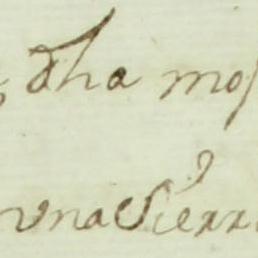 dha mos
una Sierr